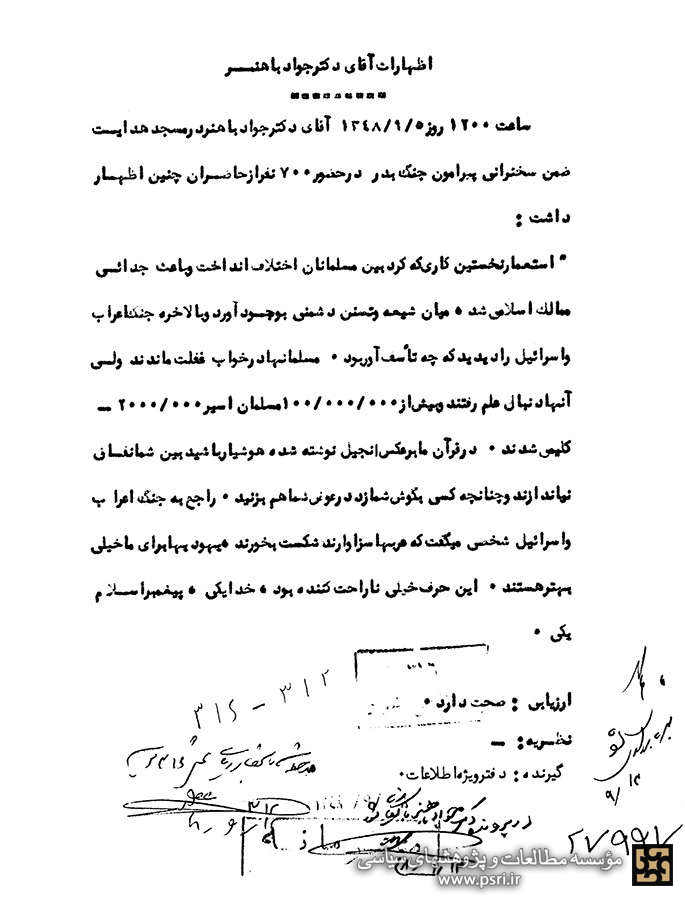 اظهارات آقای دکتر جواد باهنر
ساعت ۱۲۰۰ روز ۱۳٤۸/۹/۵ آقای دکتر جواد باهنر در مسجد هدایت
ضمن سخنرانی پیرامون جنگ بدر در حضور ۷۰۰ نفر از حاضران چنین اظهار
داشت :
" استعمار نخستین کاری که کرد بین مسلمانان اختلاف انداخت و باعث جدائی
ممالک اسلامی شد ، میان شیعه و تسنن دشمنی بوجود آورد و بالاخره جنگ اعراب
و اسرائیل را دیدید که چه تأسف آور بود . مسلمانها در خواب غفلت ماندند ولی
آنها دنبال علم رفتند و بیش از ۱۰۰/۰۰۰/۰۰۰ مسلمان اسیر ۲۰۰۰/۰۰۰ ـ
کلیمی شدند . در قرآن ما برعکس انجیل نوشته شده هوشیار باشید بین شما نفاق
نیاندازند و چنانچه کسی بگوش شما زد در عوض شما هم بزنید . راجع به جنگ اعراب
و اسرائیل شخصی میگفت که عربها سزاوارند شکست بخورند ، یهودیها برای ما خیلی
بهتر هستند . این حرف خیلی ناراحت کننده بود ، خدا یکی ، پیغمبر اسلام
یکی .
۳۱۲ - ۳۱۶
ارزیابی : صحت دارد .
نظریه : ـ
گیرنده : دفتر ویژه اطلاعات .
۹/۱۲
۳۱۲
در پرونده دکتر جواد باهنر
۲۷۹۹۷
مؤسسه مطالعات و پژوهشهای سیاسی
www.psri.ir